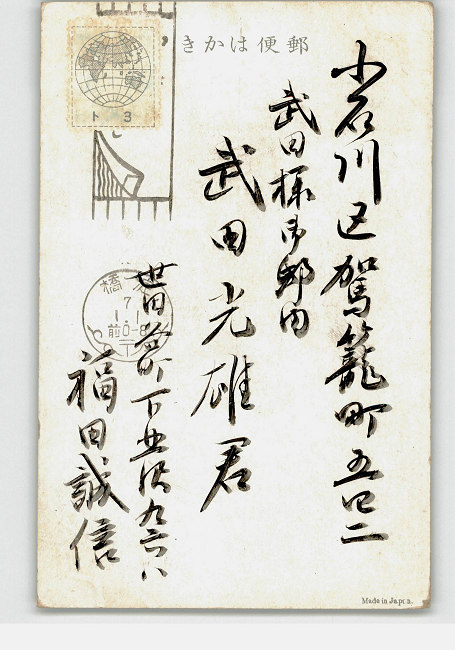 郵便はかき
小石川区駕籠町五四二
武田様御邸内
武田光雄君
世田谷町下北沢九六八
福田誠信
ト 3
橋
7
1.1
前0-8
Made in Japan.